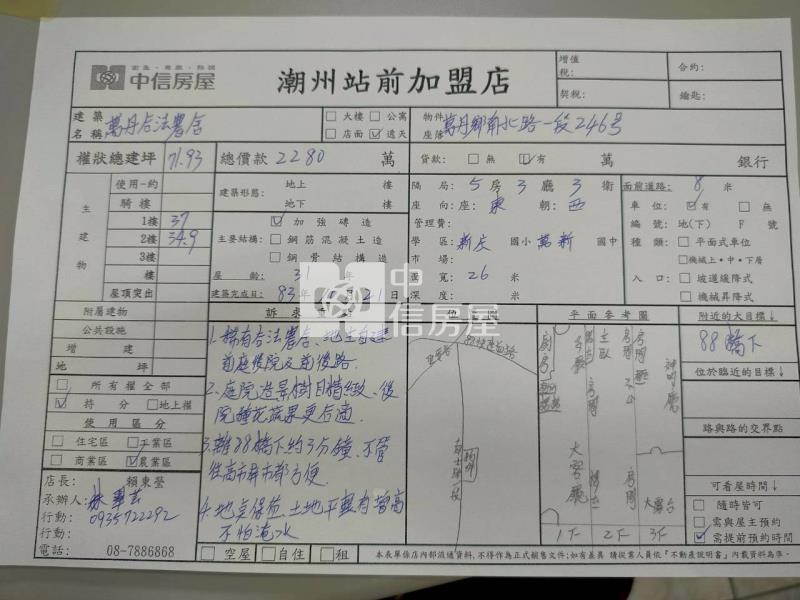 中信房屋
潮州站前加盟店
增值稅:
合約:
契稅:
鑰匙:
建築名稱 萬丹合法農舍
大樓 公寓
店面 透天
物件座落 萬丹鄉南北路一段246號
權狀總建坪 71.93
總價款 2280 萬
貸款: 無 有 萬 銀行
主建物
使用一約
騎樓
1樓 37
2樓 34.9
3樓
樓
屋頂突出
建築形態: 地上 樓
地下 樓
主要結構: 加強磚造
鋼筋混凝土造
鋼骨結構造
屋齡: 31 年
建築完成日: 83年 月21日
隔局: 5房3廳3衛
座向:座: 東 朝: 西
管理費:
學區: 新庄 國小 萬新 國中
市場:
面寬: 26 米
深度: 米
面前道路: 8 米
車位: 有 無
編號: 地(下) F 號
種類: 平面式車位
機械上·中·下層
入口: 坡道緩降式
機械昇降式
附屬建物
公共設施
增建
地坪
所有權全部
持分 地上權
使用區分
住宅區 工業區
商業區 農業區
訴求重點
1.稀有合法農舍、地主自建
前庭後院及前後路.
2.庭院造景樹目精緻、後
院種花蔬果更合適
3.離88橋下約3分鐘、不管
往高市屏市都方便.
4.地点保值、土地平整有增高
不怕淹水
位置圖
88快速道路
物件
平面參考圖
廚房
客廳
主臥
房間
神明廳
大客廳
房間
大露台
1F 2F 3F
附近的大目標↓
88橋下
位於臨近的目標↓
路與路的交界點
可看屋時間↓
隨時皆可
需與屋主預約
需提前預約時間
店長: 賴東瑩
承辦人:
行動: 0935722292
行動:
電話: 08-7886868
空屋 自住 租
本表單係店內部流通資料,不得作為正式銷售文件;如有差異 請從業人員依『不動產說明書』內載資料為準.
中信房屋